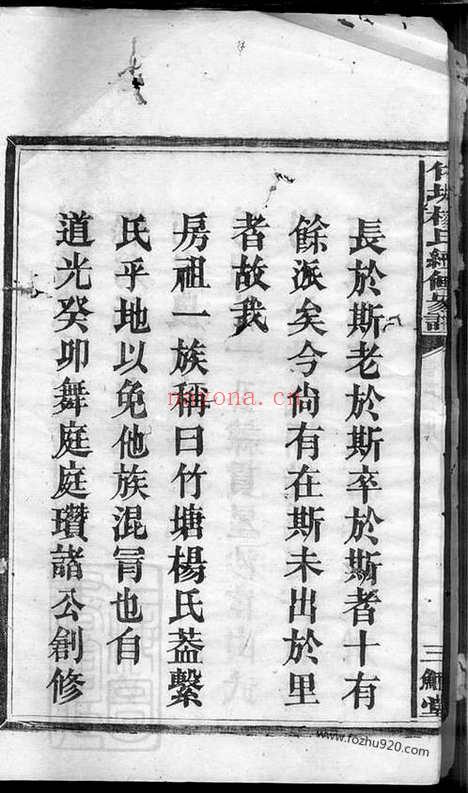 竹塘楊氏續修家譜
三鱣堂
長於斯老於斯卒於斯者十有
餘派矣今尙有在斯未出於里
者故我
房祖一族稱曰竹塘楊氏葢繫
氏乎地以免他族混冐也自
道光癸卯舞庭庭瓚諸公創修
nayona.cn
www.fozhu920.com